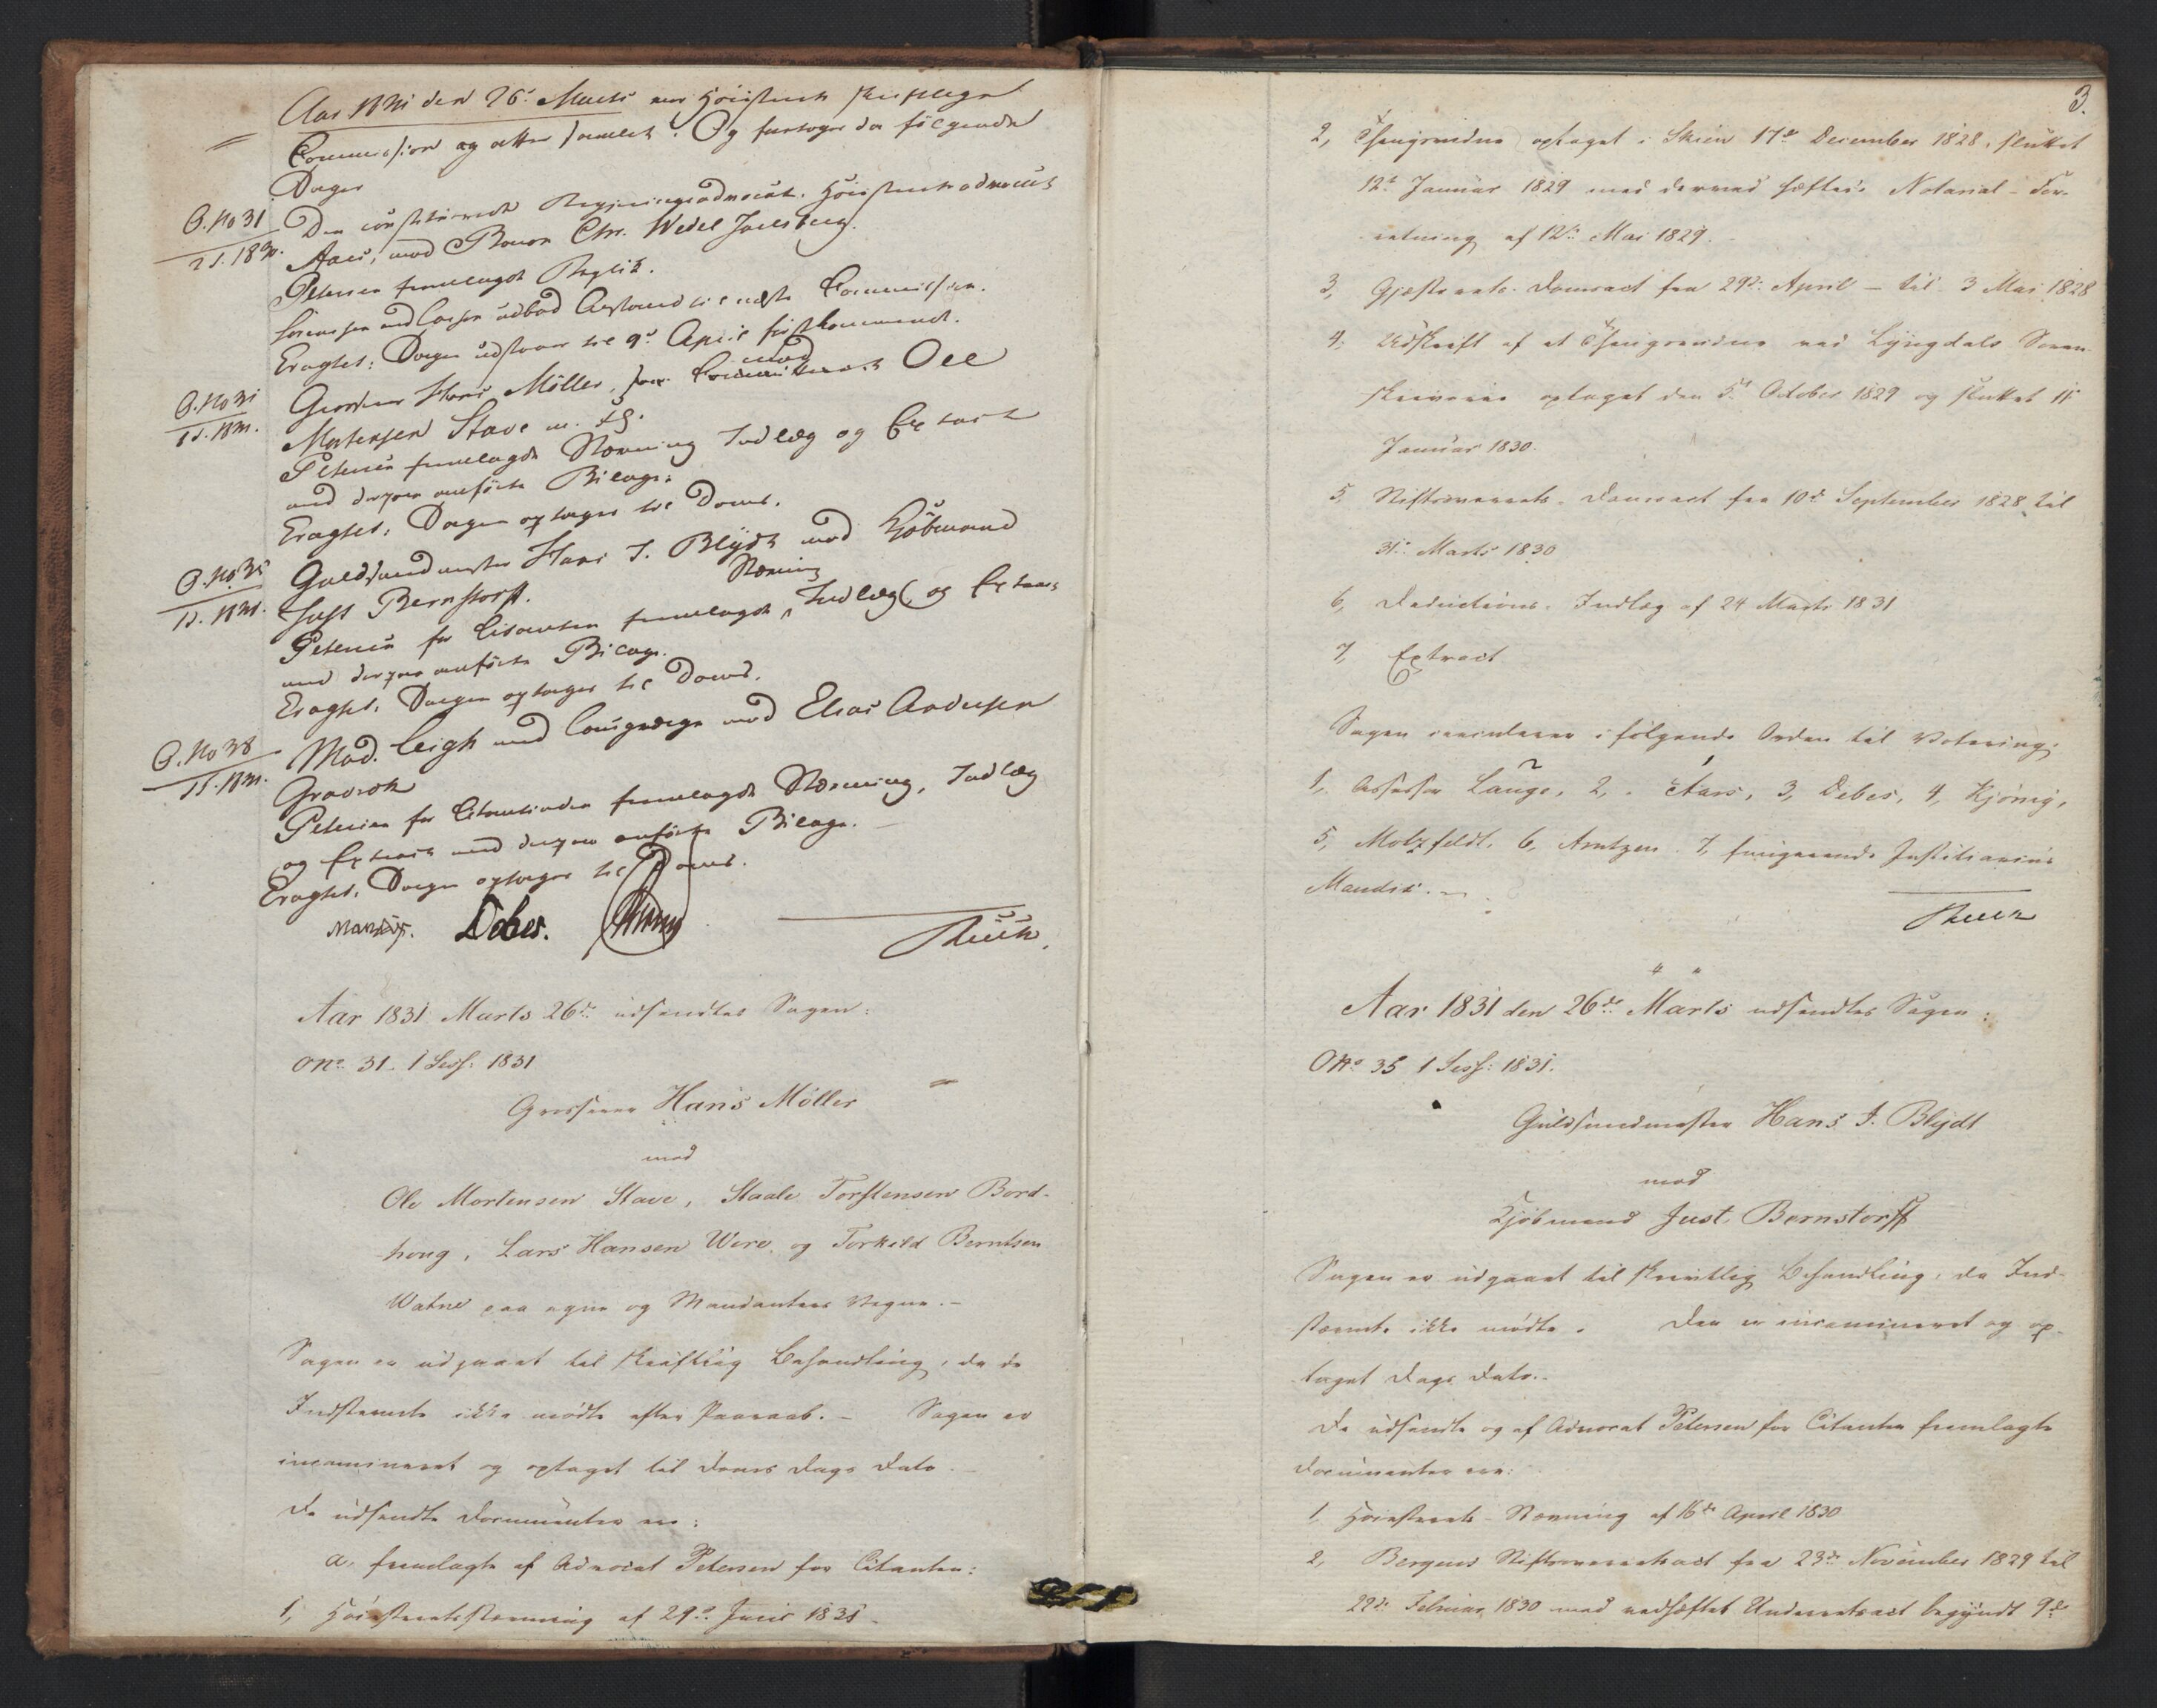 Aar 1831 den 26de Marts var Høiesteret skriftlige
Commission og atter samlet. Og foretoges da følgende
Sager
O. No 31
2 S. 1830.
Den constituerede Regjeringsadvocat Høiesteretsadvocat
Aars, mod Baron Chr. Wedel Jarlsberg.
Petersen fremlagde Replik.
Sørenssen med Carsen udbad Anstand til næste Commission.
Eragtet: Sagen udstaar til 9de April førstkommende.
O. No 31
1 S. 1831.
Grosserer Hans Møller, mod Ole
Mortensen Stave m. fl.
Petersen fremlagde Stævning Indlæg og Extract
med derpaa anførte Bilage.
Eragtet: Sagen optages til Doms.
O. No 35
1 S. 1831.
Guldsmedmester Hans J. Blydt mod Kjøbmand
Just Bernstorff.
Petersen for Citanten fremlagde Stævning Indlæg og Extract
med derpaa anførte Bilage.
Eragtet. Sagen optages til Doms.
O. No 38
1 S. 1831.
Mad. Leigh med Laugværge mod Elias Andersen
Gravrok
Petersen for Citantinden fremlagde Stævning, Indlæg
og Extract med derpaa anførte Bilage.
Eragtet. Sagen optages til Doms.
Mandix. Debes.
Aar 1831 Marts 26de udsendtes Sagen:
O No 31. 1 Sess: 1831
Grosserer Hans Møller
mod
Ole Mortensen Stave, Staale Torstensen Bord-
houg, Lars Hansen Were og Torkild Berntsen
Watne paa egne og Mandanters Vegne.-
Sagen er udgaaet til skriftlig Behandling, da de
Indstevnte ikke mødte efter Paaraab.- Sagen er
incamineret og optaget til Doms Dags Dato.-
De udsendte Documenter ere:
a. fremlagte af Advocat Petersen for Citanten:
1, Høiesteretsstævning af 29de Juni 1830
3.
2, Thingsvidne optaget i Skien 17de December 1828, sluttet
12te Januar 1829 med dermed hæftede Notarial-For-
retning af 12te Mai 1829.
3, Gjæsterets-Domsact fra 29de April - til 3 Mai 1828
4, Udskrift af et Thingsvidne ved Lyngdals Soren-
skriverie optaget den 5te October 1829 og sluttet 11
Januar 1830.
5, Stiftsoverrets-Domsact fra 10de September 1828 til
31te Marts 1830
6, Deductions-Indlæg af 24 Marts 1831
7, Extract
Sagen circulerer i følgende Orden til Votering:
1, Assessor Lange, 2, Aars, 3, Debes, 4, Kjønig,
5, Motzfeldt, 6, Arntzen 7, fungerende Justitiarius
Mandix.
Aar 1831 den 26de Marts udsendtes Sagen:
O No 35 1 Sess: 1831.
Guldsmedmester Hans J. Blydt
mod
Kjøbmand Just Bernstorff
Sagen er udgaaet til skriftlig Behandling, da Ind-
stævnte ikke mødte. Den er incamineret og op-
taget Dags Dato.
De udsendte og af Advocat Petersen for Citanten fremlagte
Documenter ere:
1, Høiesterets-Stævning af 16de April 1830
2, Bergens Stiftsoverretsact fra 23de November 1829 til
22de Februar 1830 med vedhæftet Underretsact begyndt 9de